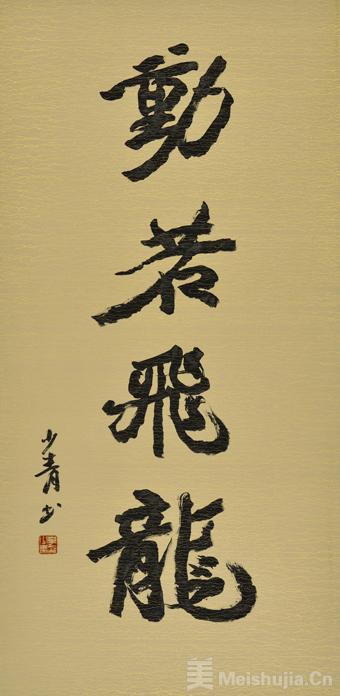 動若飛龍
少青书
美 Meishujia.Cn